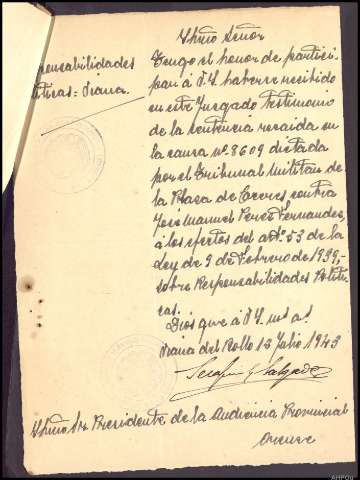 Ilmo Señor
Responsabilidades
Políticas = Viana.
Tengo el honor de partici-
par á V.I. haberse recibido
en este Juzgado testimonio
de la sentencia recaida en
la causa nº. 8609 dictada
por el Tribunal Militar de
la Plaza de Caceres contra
José Manuel Perez Fernandez,
á los efectos del artº. 53 de la
Ley de 9 de Febrero de 1939,
sobre Responsabilidades Politi-
cas.
Dios gue á V.I. ms as
Viana del Bollo 13 Julio 1943
Ilmo Sr Presidente de la Audiencia Provincial
Orense
AHPOu